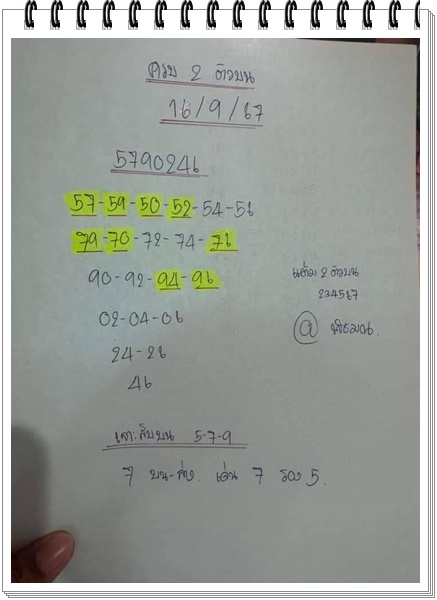 ครบ 2 ตัวบน
16/9/67
5790246
57-59-50-52-54-56
79-70-72-74-76
90-92-94-96
02-04-06
24-26
46
แต้ม 2 ตัวบน
234567
@
เจาะสิบบน 5-7-9
7 บน-ล่าง เด่น 7 รอง 5.